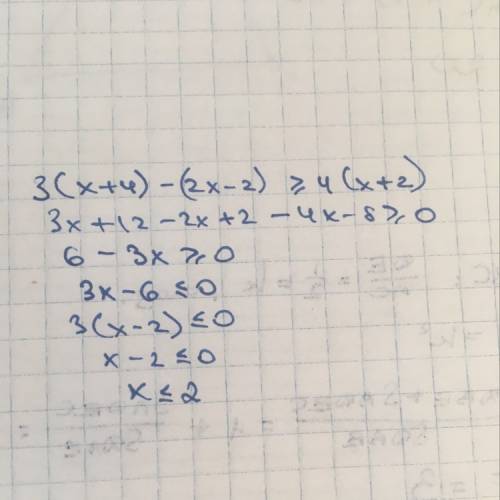 3(x+4) -(2x-2) ⩾ 4(x+2)
3x+12-2x+2-4x-8⩾0
6-3x⩾0
3x-6≤0
3(x-2)≤0
x-2≤0
x≤2